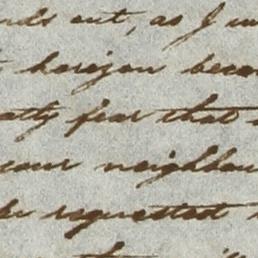 nds out, as I
horizon beco
atly fear that
your neighbou
requested